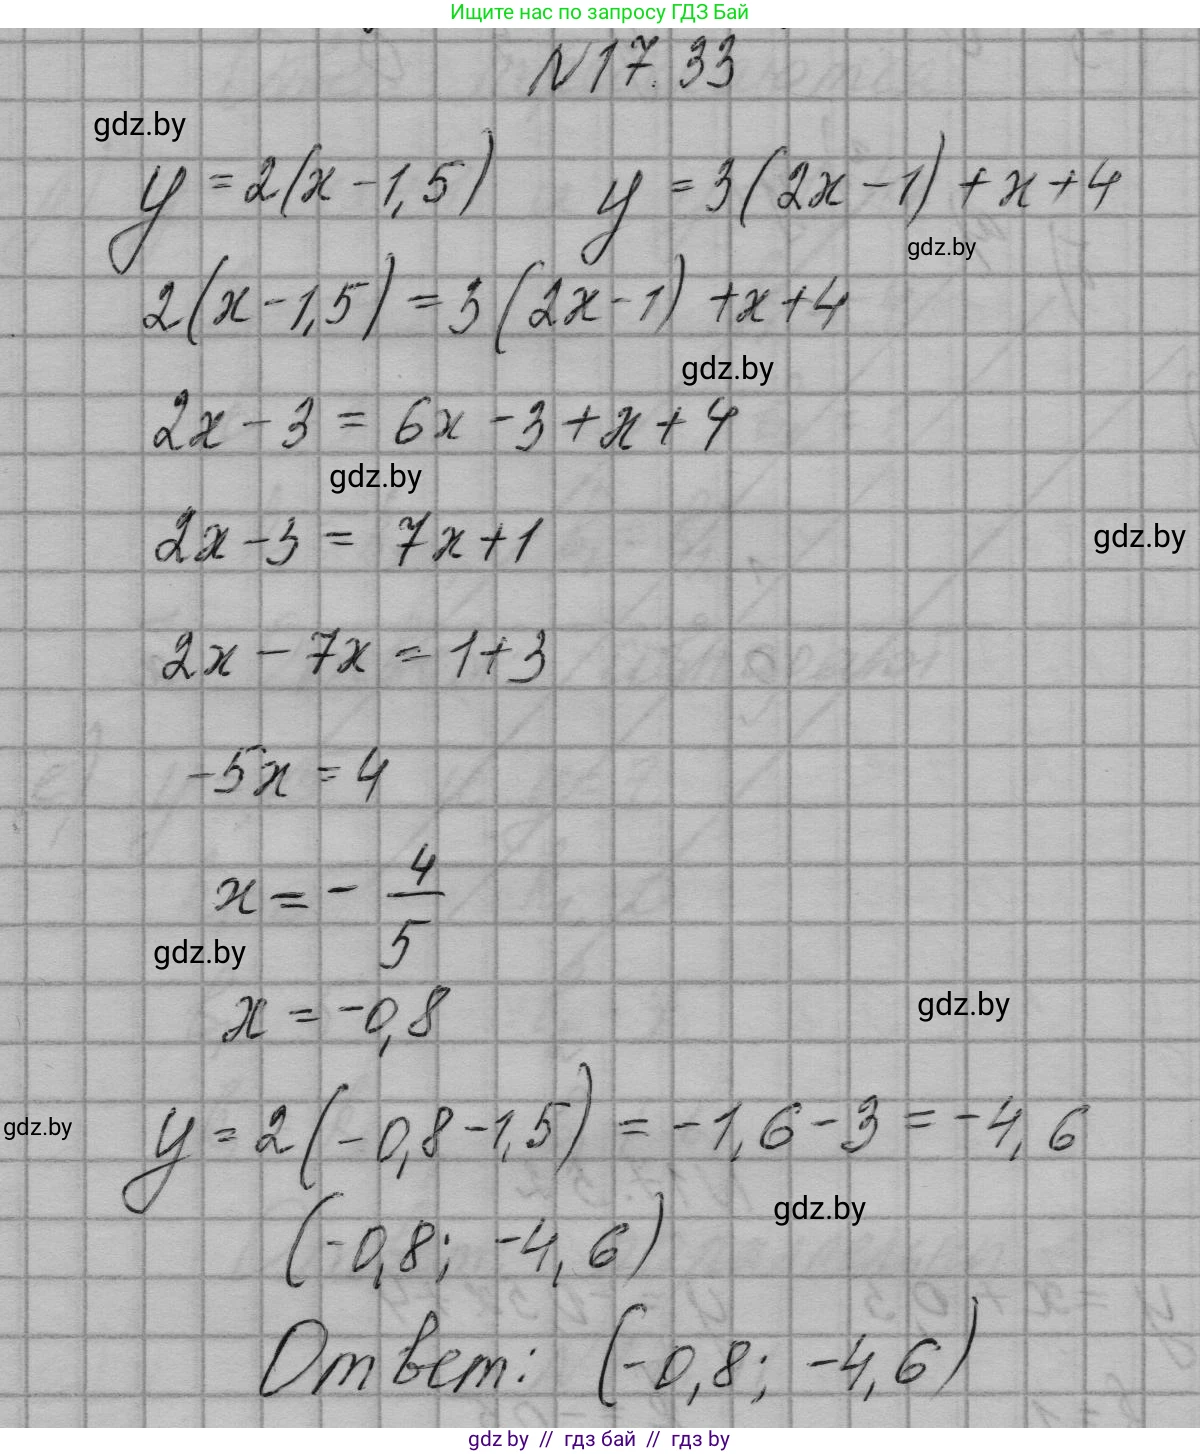 Ищите нас по запросу ГДЗ Бай
N17.33
gdz.by
y = 2(x - 1,5) y = 3(2x - 1) + x + 4
gdz.by
2(x - 1,5) = 3(2x - 1) + x + 4
gdz.by
2x - 3 = 6x - 3 + x + 4
gdz.by
2x - 3 = 7x + 1
gdz.by
2x - 7x = 1 + 3
-5x = 4
x = - 4/5
gdz.by
x = -0,8
gdz.by
y = 2(-0,8 - 1,5) = -1,6 - 3 = -4,6
gdz.by
gdz.by
(-0,8; -4,6)
Ответ: (-0,8; -4,6)
gdz.by // гдз бай // гдз by